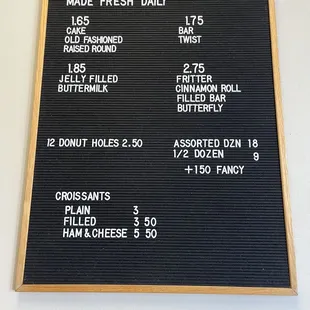 MADE FRESH DAILY
1.65
CAKE
OLD FASHIONED
RAISED ROUND
1.75
BAR
TWIST
1.85
JELLY FILLED
BUTTERMILK
2.75
FRITTER
CINNAMON ROLL
FILLED BAR
BUTTERFLY
12 DONUT HOLES 2.50
ASSORTED DZN 18
1/2 DOZEN 9
+150 FANCY
CROISSANTS
PLAIN 3
FILLED 3 50
HAM & CHEESE 5 50